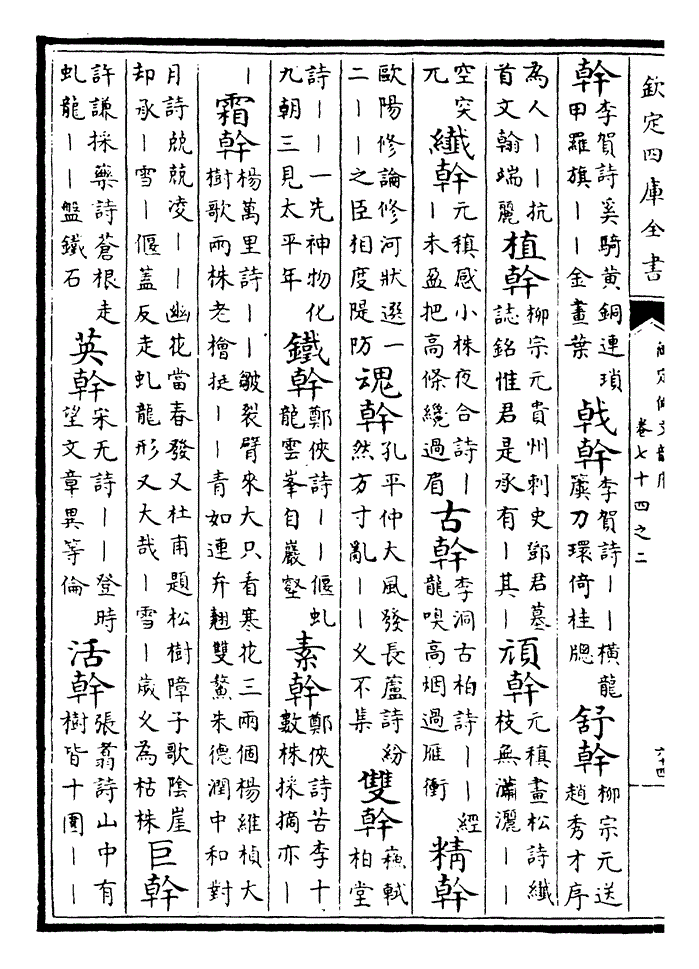 欽定四庫全書
卷七十四之二
六十四
幹
李賀詩奚騎黃銅連瑣
甲羅旗丨丨金畫葉
戟幹
李賀詩丨丨橫龍
簴刀環倚桂牕
舒幹
柳宗元送
趙秀才序
為人丨丨抗
首文翰端麗
植幹
柳宗元貴州刺史鄧君墓
誌銘惟君是承有丨其丨
頑幹
元稹畫松詩纖
枝無瀟灑丨丨
空突
兀
纖幹
元稹感小株夜合詩丨
丨未盈把高條纔過眉
古幹
李洞古柏詩丨丨經
龍嗅高烟過雁衝
精幹
歐陽修論修河狀選一
二丨丨之臣相度隄防
魂幹
孔平仲大風發長蘆詩紛
然方寸亂丨丨久不集
雙幹
蘇軾
柏堂
詩丨丨一先神物化
九朝三見太平年
鐵幹
鄭俠詩丨丨偃虬
龍雲峯自巖壑
素幹
鄭俠詩苦李十
數株採摘亦丨
丨
霜幹
楊萬里詩丨丨皴裂臂來大只看寒花三兩個楊維楨大
樹歌兩株老檜挺丨丨青如連弁翹雙鰲朱德潤中和對
月詩兢兢凌丨丨幽花當春發又杜甫題松樹障子歌陰崖
却承丨雪丨偃蓋反走虬龍形又大哉丨雪丨歲久為枯株
巨幹
許謙採藥詩蒼根走
虬龍丨丨盤鐵石
英幹
宋无詩丨丨登時
望文章異等倫
活幹
張翥詩山中有
樹皆十圍丨丨